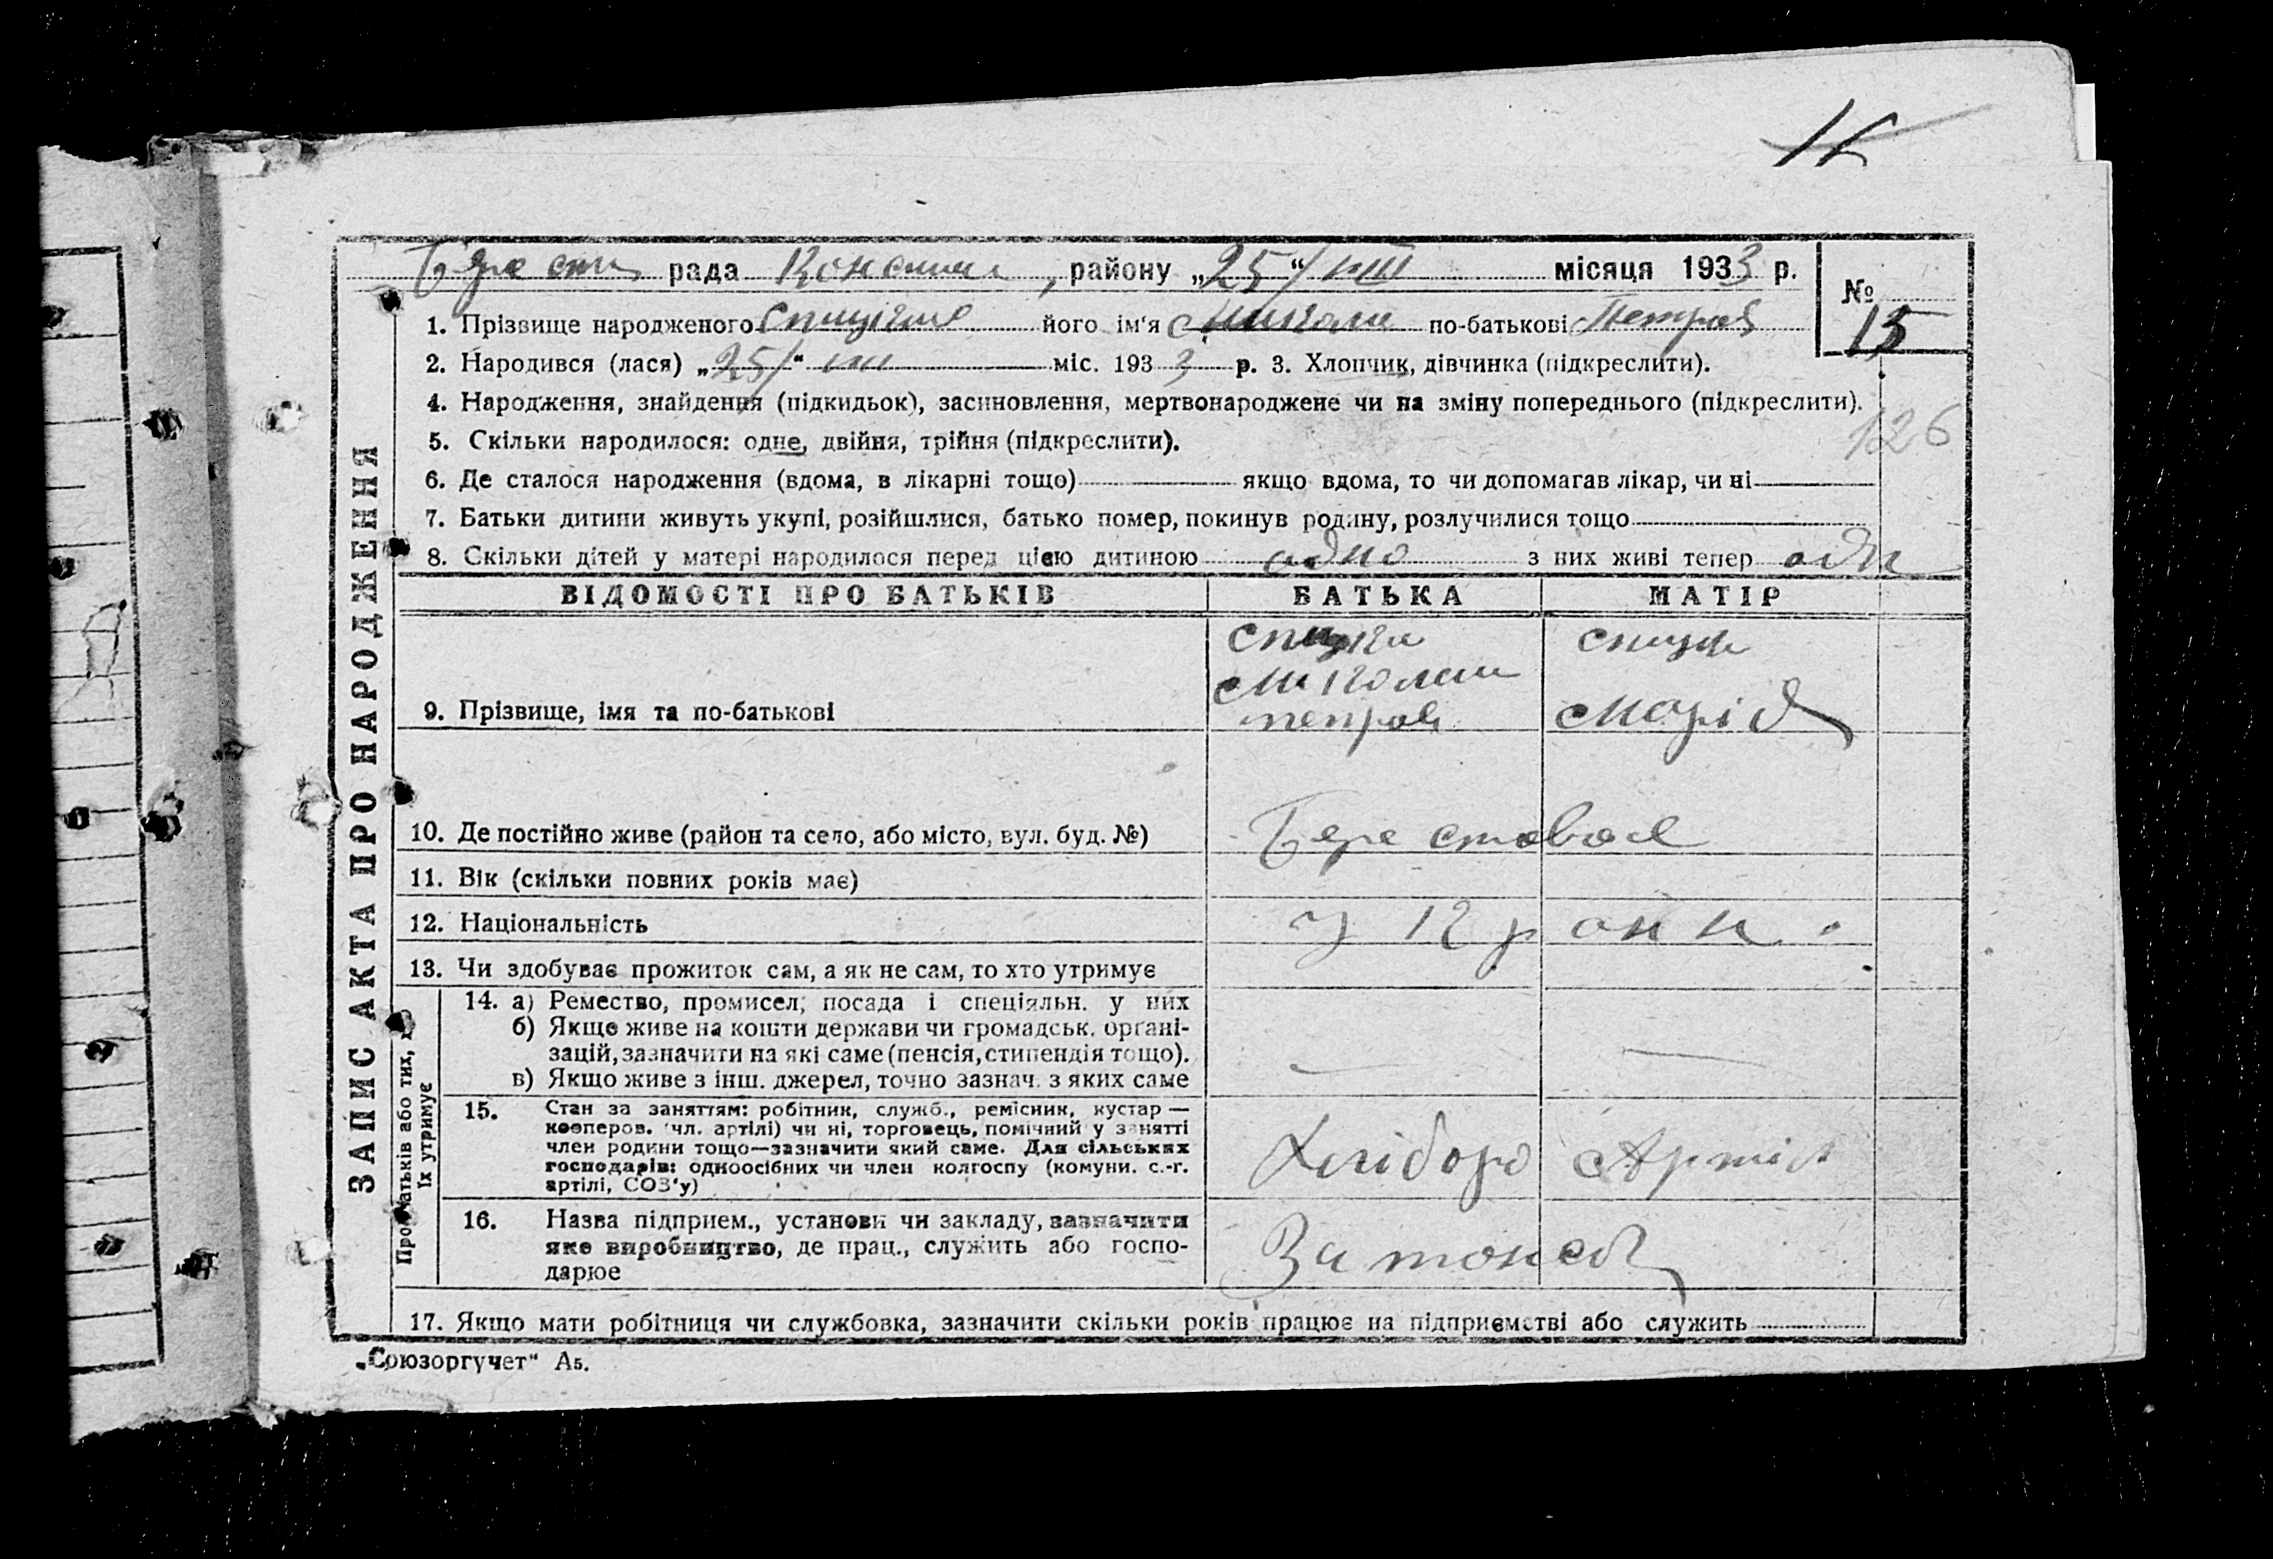 рада , району „25“/VIII місяця 1933 р.
№ 15
1. Прізвище народженого його ім‘я Микола по-батькові Петров
2. Народився (лася) „25/“ VIII міс. 1933 р. 3. Хлопчик, дівчинка (підкреслити).
4. Народження, знайдення (підкидьок), засиновлення, мертвонароджене чи на зміну попереднього (підкреслити).
126
5. Скільки народилося: одне, двійня, трійня (підкреслити).
6. Де сталося народження (вдома, в лікарні тощо) якщо вдома, то чи допомагав лікар, чи ні
7. Батьки дитини живуть укупі, розійшлися, батько помер, покинув родину, розлучилися тощо
8. Скільки дітей у матері народилося перед цією дитиною одно з них живі тепер одн
ЗАПИС АКТА ПРО НАРОДЖЕННЯ
ВІДОМОСТІ ПРО БАТЬКІВ БАТЬКА МАТІР
9. Прізвище, імя та по-батькові
Петров Марія
10. Де постійно живе (район та село, або місто, вул. буд. №) Берестовая
11. Вік (скільки повних років має)
12. Національність
13. Чи здобуває прожиток сам, а як не сам, то хто утримує
Про батьків або тих, х
їх утримує
14. а) Ремество, промисел, посада і спеціяльн. у них
б) Якщо живе на кошти держави чи громадськ. організацій, зазначити на які саме (пенсія, стипендія тощо).
в) Якщо живе з інш. джерел, точно зазнач. з яких саме
15. Стан за заняттям: робітник, служб., ремісник, кустар —
кооперов. чл. артілі) чи ні, торговець, помічний у занятті
член родини тощо—зазначити який саме. Для сільських
господарів: одноосібних чи член колгоспу (комуни. с.-г.
артілі, СОЗ‘у)
Хлібороб Артіл
16. Назва підприєм., установи чи закладу, зазначити
яке виробництво, де прац., служить або господарює
17. Якщо мати робітниця чи службовка, зазначити скільки років працює на підприємстві або служить
„Союзоргучет“ А5.